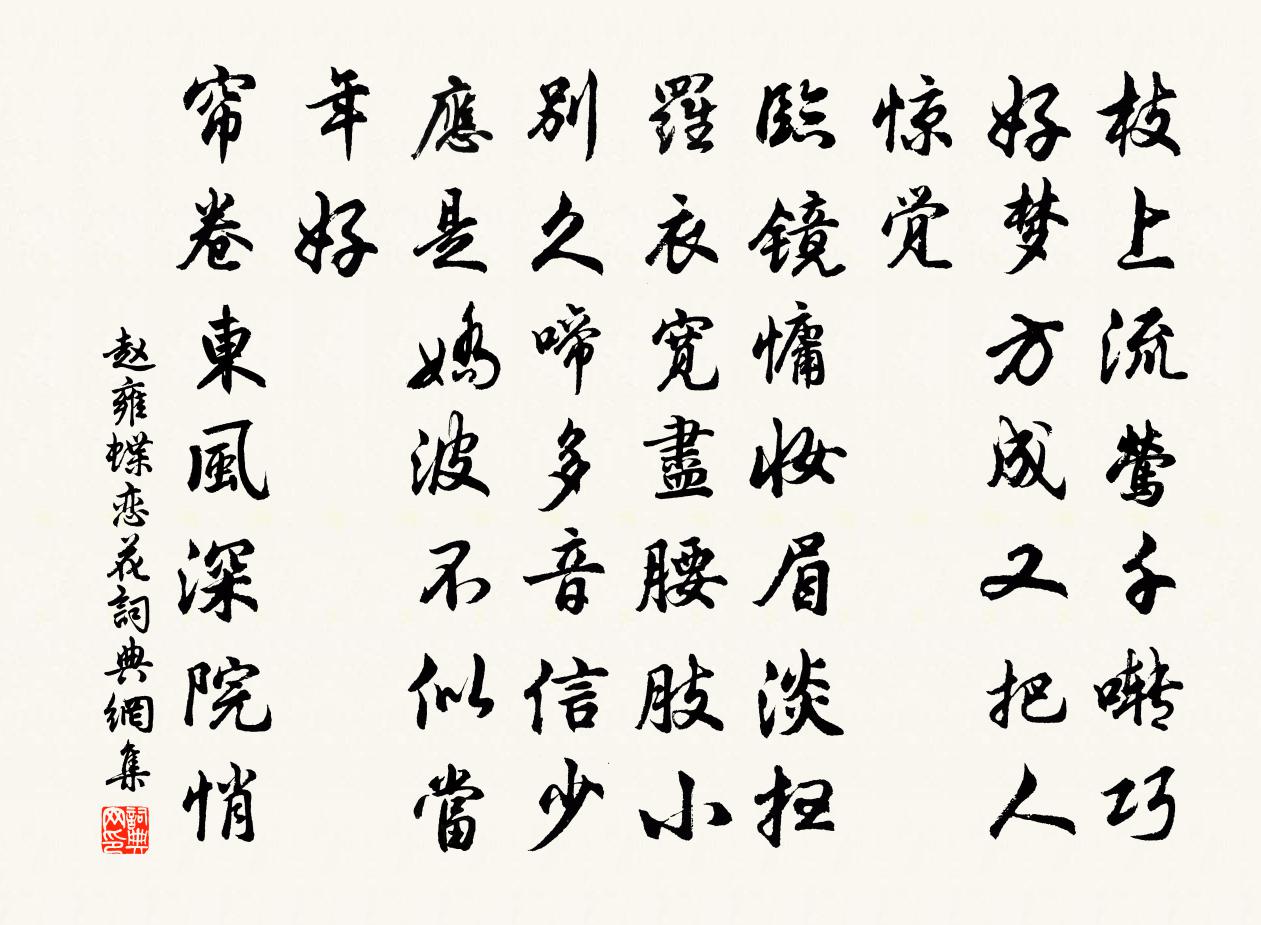 枝上流莺千啭巧
好梦方成又把人
惊觉
臨镜慵妆眉淡扫
羅衣宽盡腰肢小
别久啼多音信少
應是娇波不似當
年好
帘卷東風深院悄
赵雍蝶恋花詞典網集
詞典网印